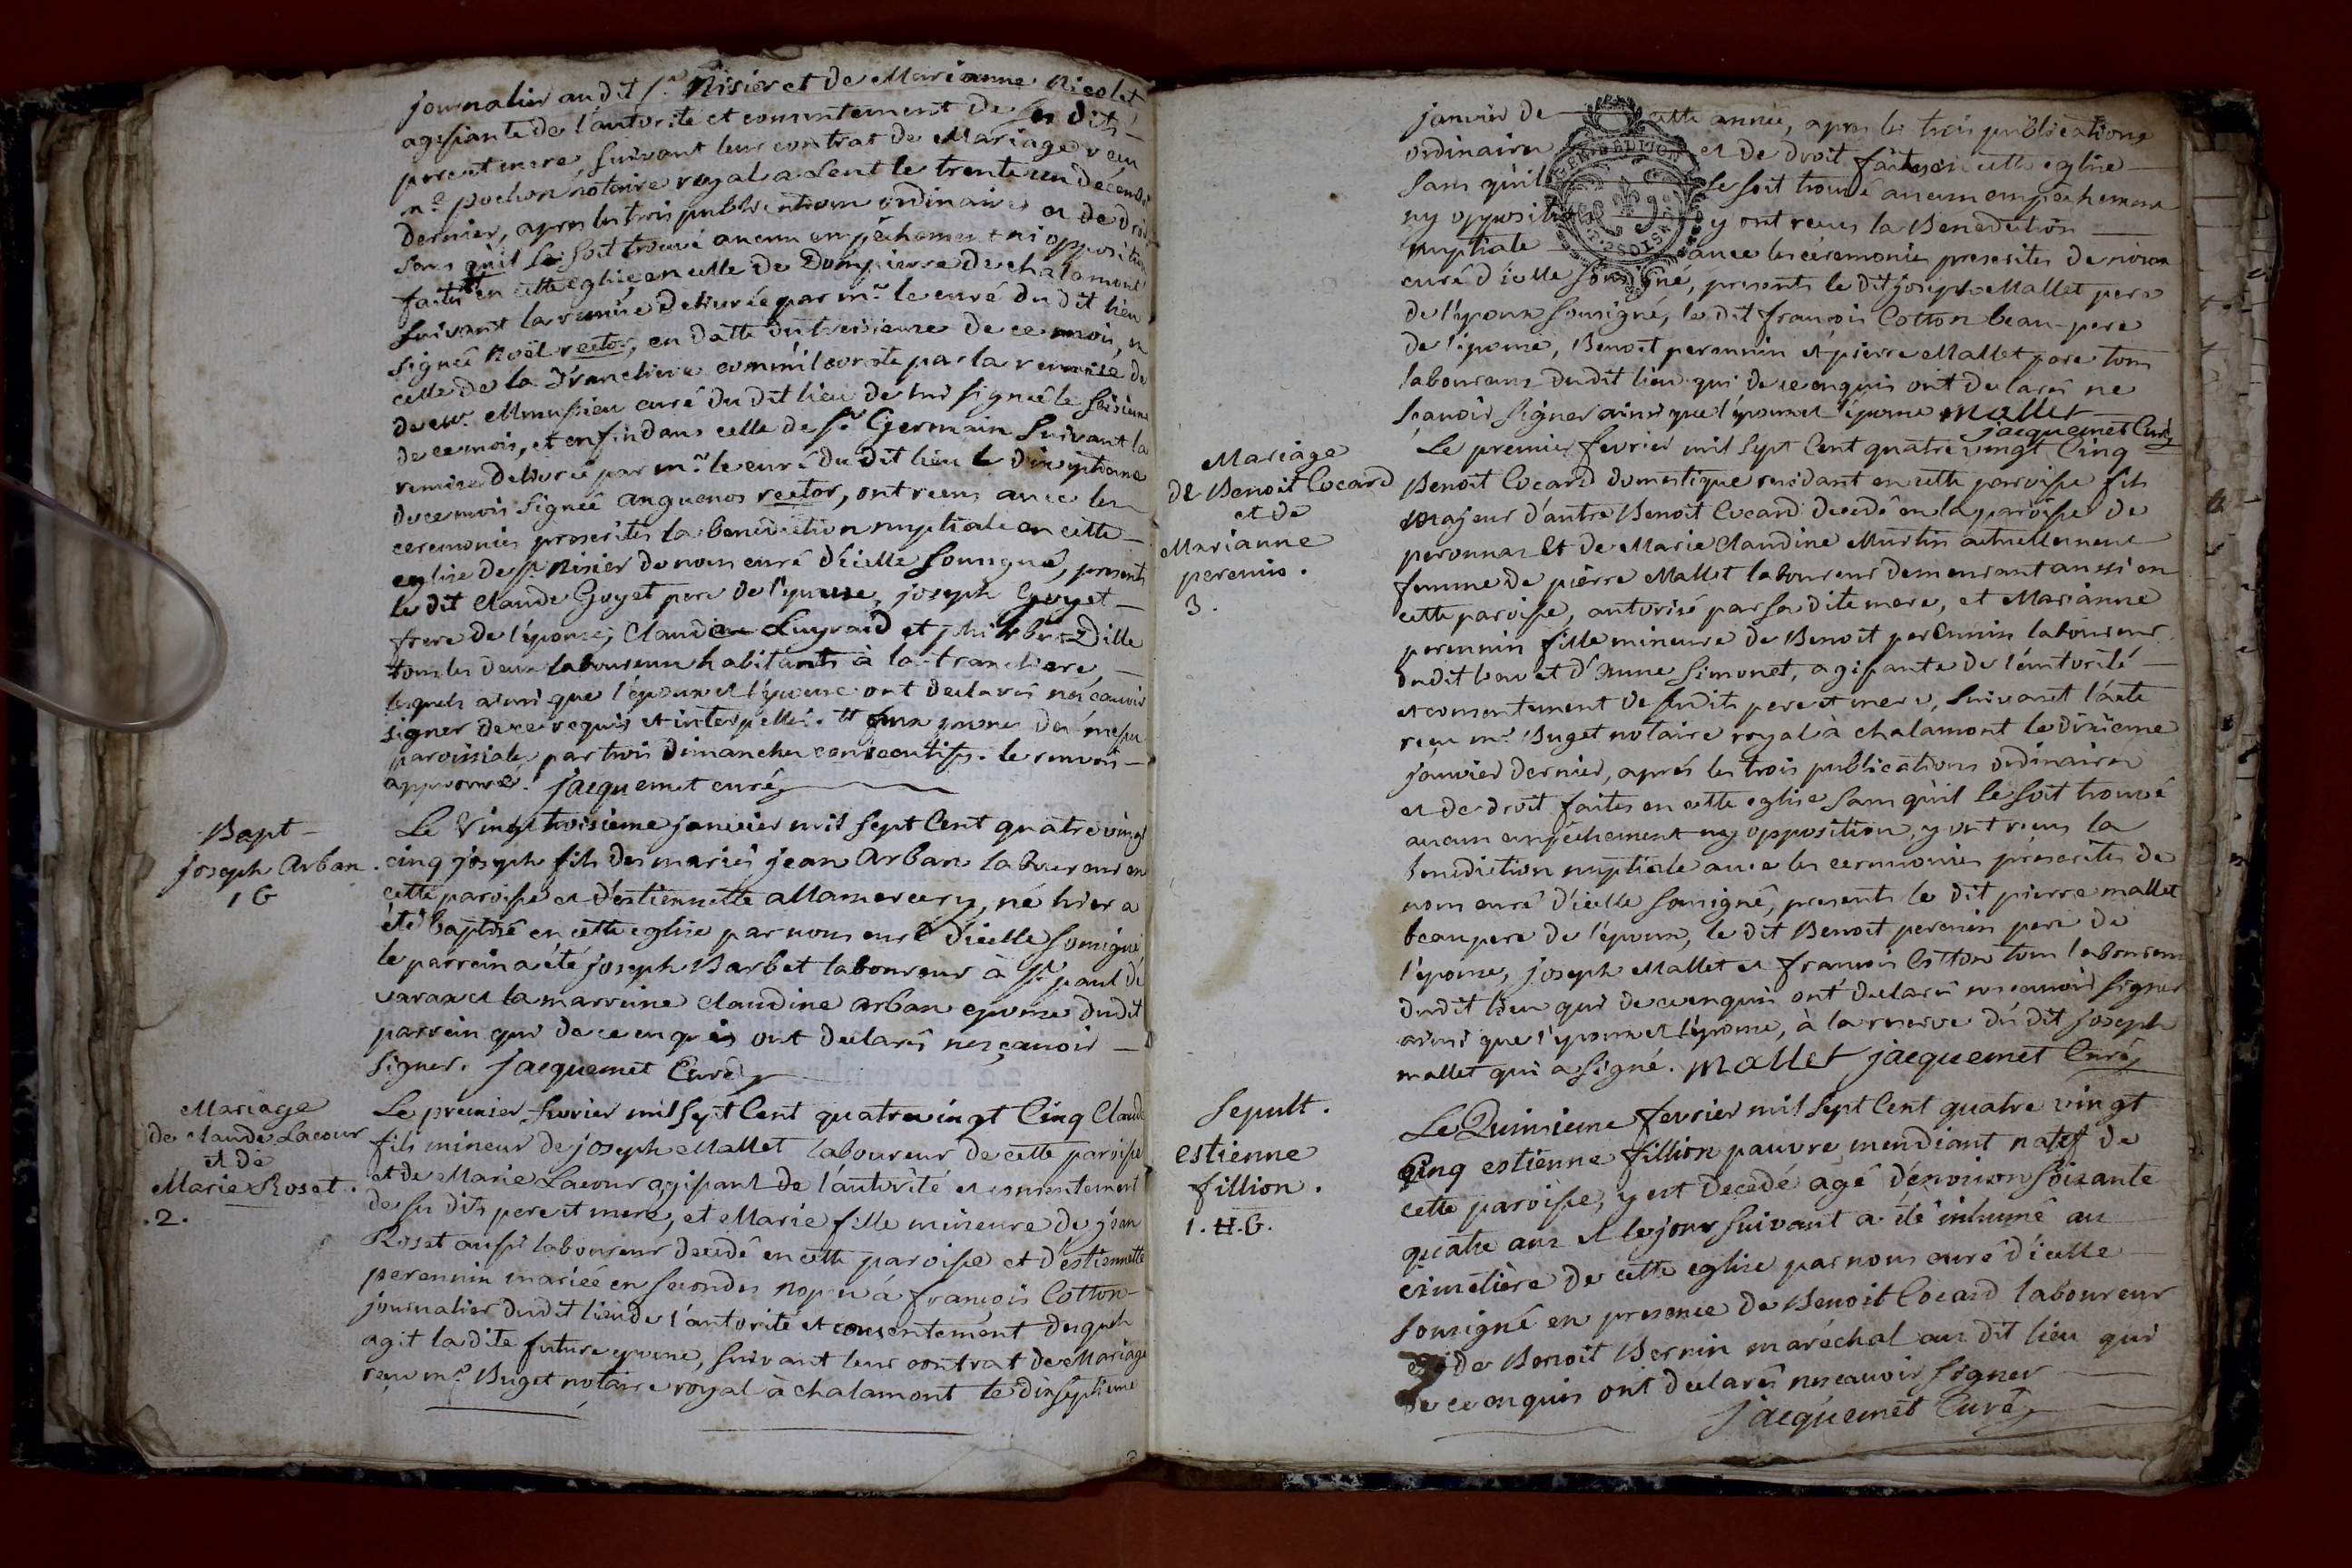 journalier au dit St. Nisier et de Marianne Nicolet
agissante de l'autorité et consentement de ses dits
pere et mere suivant leur contrat de Mariage reçu
me. pochon notaire royal a sent le trente un décembre
dernier, apres les trois publications ordinaires et de droit
sans qu'il se soit trouvé aucun empéchement ni opposition
faites tt en cette eglise en celle de Dompierre de chalamont
suivant la remise delivrée par mr. le curé du dit lieu
signée Noël rector, en datte du treizieme de ce mois, en
celle de la Tranchere comm'il conste par la remise de
de mr. curé du dit lieu de lui signeé le seizieme
de ce mois, et enfin dans celle de St. Germain suivant la
remise delivrée par mr. le curé du dit lieu le dixseptieme
de ce mois signeé anguenos rector, ont reçus avec les
ceremonies prescrites la benediction nuptiale en cette
eglise de St. Nisier de nous curé d'icelle sousigné, presents
le dit Claude Goyet pere de l'epouse, joseph Goyet
frere de l'épouse, Claudine Lugraid et philibert Dille
tous les deux laboureurs habitants à la tranchere,
lesquels ainsi que l'époux et l'épouse ont declarés ne sçavoir
signer de ce requis et interpellés. tt aux prones des messes
paroissiales par trois dimanches consecutifs. le renvois
approuvé. jacquemet curé
Bapt
joseph Arban.
1 G
Le vingt troisieme janvier mil sept cent quatre vingt
cinq joseph fils des mariés jean Arban laboureur en
cette paroisse et d'estiennette allamercery, né hier a
été baptisé en cette eglise par nous curé d'icelle sousigné
le parrain a été joseph Barbet laboureur à St. paul de
varax et la marraine claudine arban epouse dudit
parrain qui de ce enquis ont declarés ne sçavoir
signer. jacquemet Curé
Mariage
de claude Lacour
et de
Marie Roset.
.2.
Le premier fevrier mil sept Cent quatre vingt Cinq Claude
fils mineur de joseph Mallet laboureur de cette paroisse
et de Marie Lacour agissant de l'autorité et consentement
de ses dits pere et mere, et Marie fille mineure de jean
Roset aussi laboureur decedé en cette paroisse et d'estiennette
perennin mariée en secondes nopces à françois Cotton
journalier dudit lieu de l'autorité et consentement desquels
agit la dite future epouse, suivant leur contrat de Mariage
reçu me. Buget notaire royal à chalamont le dixseptieme
janvier de cette année, apres les trois publications
ordinaires et de droit faites en cette eglise
sans qu'il se soit trouvé aucun empechement
ny opposition y ont reçus la Benediction
nuptiale avec les céremonies prescrites de nous
curé d'icelle sousigné, presents le dit joseph Mallet pere
de l'epoux sousigné, le dit françois Cotton beau-pere
de l'épouse, Benoit perennin et pierre Mallet pere tous
laboureurs dudit lieu qui de ce enquis ont declarés ne
sçavoir signer ainsi que l'époux et l'épouse Mallet
jacquemet Curé
Mariage
de Benoit Cocard
et de
Marianne
perenin.
3.
Le premier fevrier mil sept Cent quatre vingt Cinq
Benoit Cocard domestique residant en cette paroisse fils
majeur d'autre Benoit Cocard decedé en la paroisse de
peronnas et de Marie Claudine Murtin actuellement
femme de pierre Mallet laboureur demeurant aussi en
cette paroisse, autorisé par sa dite mere, et Marianne
perennin fille mineure de Benoit perennin laboureur
dudit lieu et d'Anne Simonet, agissante de l'autorité
et consentement de sesdits pere et mere, suivant l'acte
reçu me. Buget notaire royal à chalamont le dixieme
janvier dernier, aprés les trois publications ordinaires
et de droit faites en cette eglise sans qu'il se soit trouvé
aucun empéchement ny opposition, y ont reçus la
benediction nuptiale avec les ceremonies prescrites de
nous curé d'icelle sousigné, presents le dit pierre mallet
beaupere de l'époux, le dit Benoit perenin pere de
l'épouse, joseph Mallet et françois Cotton tous laboureurs
dudit lieu qui de ce enquis ont declarés ne scavoir signer
ainsi que l'époux et l'épouse, à la reserve du dit joseph
mallet qui a signé. Mallet jacquemet Curé
Sepult.
estienne
fillion.
1. H. G.
Le Quinsieme fevrier mil sept Cent quatre vingt
Cinq estienne fillion pauvre mendiant natif de
cette paroisse, y est decedé agé d'environ soixante
quatre ans et le jour suivant a été inhumé au
cimetière de cette eglise par nous curé d'icelle
sousigné en presence de Benoit Cocard laboureur
et de Benoit Bernin maréchal au dit lieu qui
de ce enquis ont declarés ne scavoir signer
jacquemet Curé